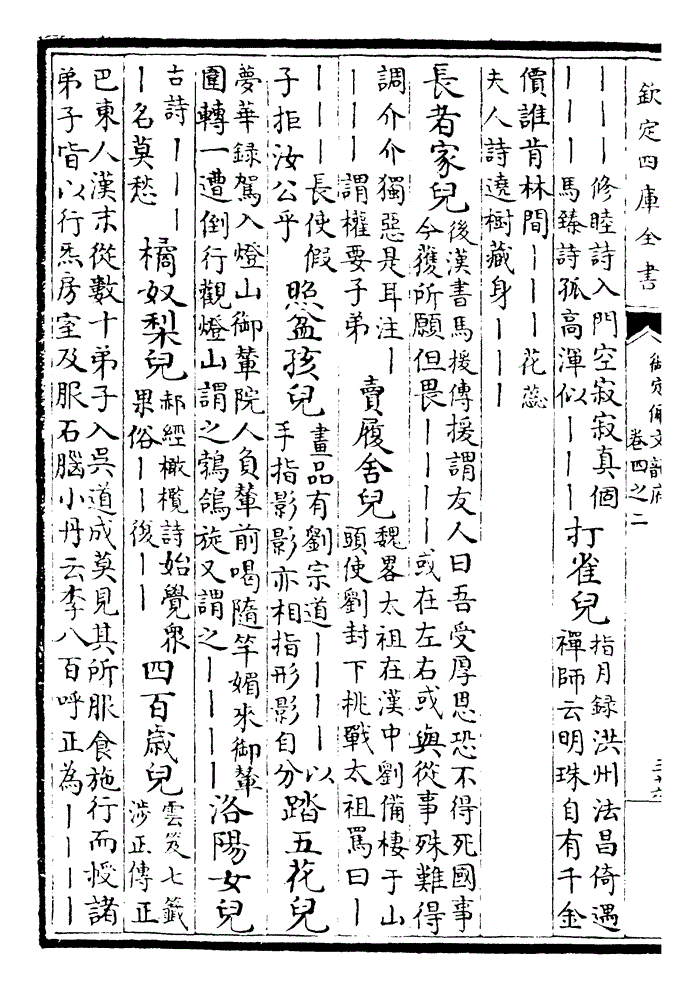 欽定四庫全書
御定佩文韻府
卷四之二
三十六
｜｜｜修睦詩入門空寂寂真個
｜｜｜馬臻詩孤高渾似｜｜｜
打雀兒
指月録洪州法昌倚遇
禪師云明珠自有千金
價誰肯林間｜｜｜花蕊
夫人詩遶樹藏身｜｜｜
長者家兒
後漢書馬援傳援謂友人曰吾受厚恩恐不得死國事
今獲所願但畏｜｜｜｜或在左右或與從事殊難得
調介介獨惡是耳注｜
｜｜｜謂權要子弟
賣履舍兒
魏畧太祖在漢中劉備棲于山
頭使劉封下挑戰太祖罵曰｜
｜｜｜長使假
子拒汝公乎
照盆孩兒
畫品有劉宗道｜｜｜｜以
手指影影亦相指形影自分
踏五花兒
夢華録駕入燈山御輦院人負輦前喝隨竿媚來御輦
團轉一遭倒行觀燈山謂之鵓鴿旋又謂之｜｜｜｜
洛陽女兒
古詩｜｜｜
｜名莫愁
橘奴梨兒
郝經橄欖詩始覺衆
果俗｜｜後｜｜
四百歲兒
雲笈七籤
涉正傳正
巴東人漢末從數十弟子入吳道成莫見其所服食施行而授諸
弟子皆以行炁房室及服石腦小丹云李八百呼正為｜｜｜｜